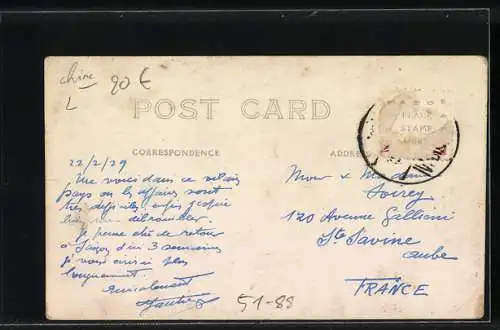 chine
20 €
L
POST CARD
CORRESPONDENCE
ADDRESS
PLACE
STAMP
HERE
22/2/29
Me voici dans ce vilain
pays ou les affaires vont
très difficiles enfin j'espère
débrouiller.
Je pense être de retour
a d'ici 3 semaines
j'vous écrirai plus
longuement.
Amicalement
Mour & Madame
Soirey
120 Avenue Gallieni
Ste Savine
Aube
FRANCE
51-88